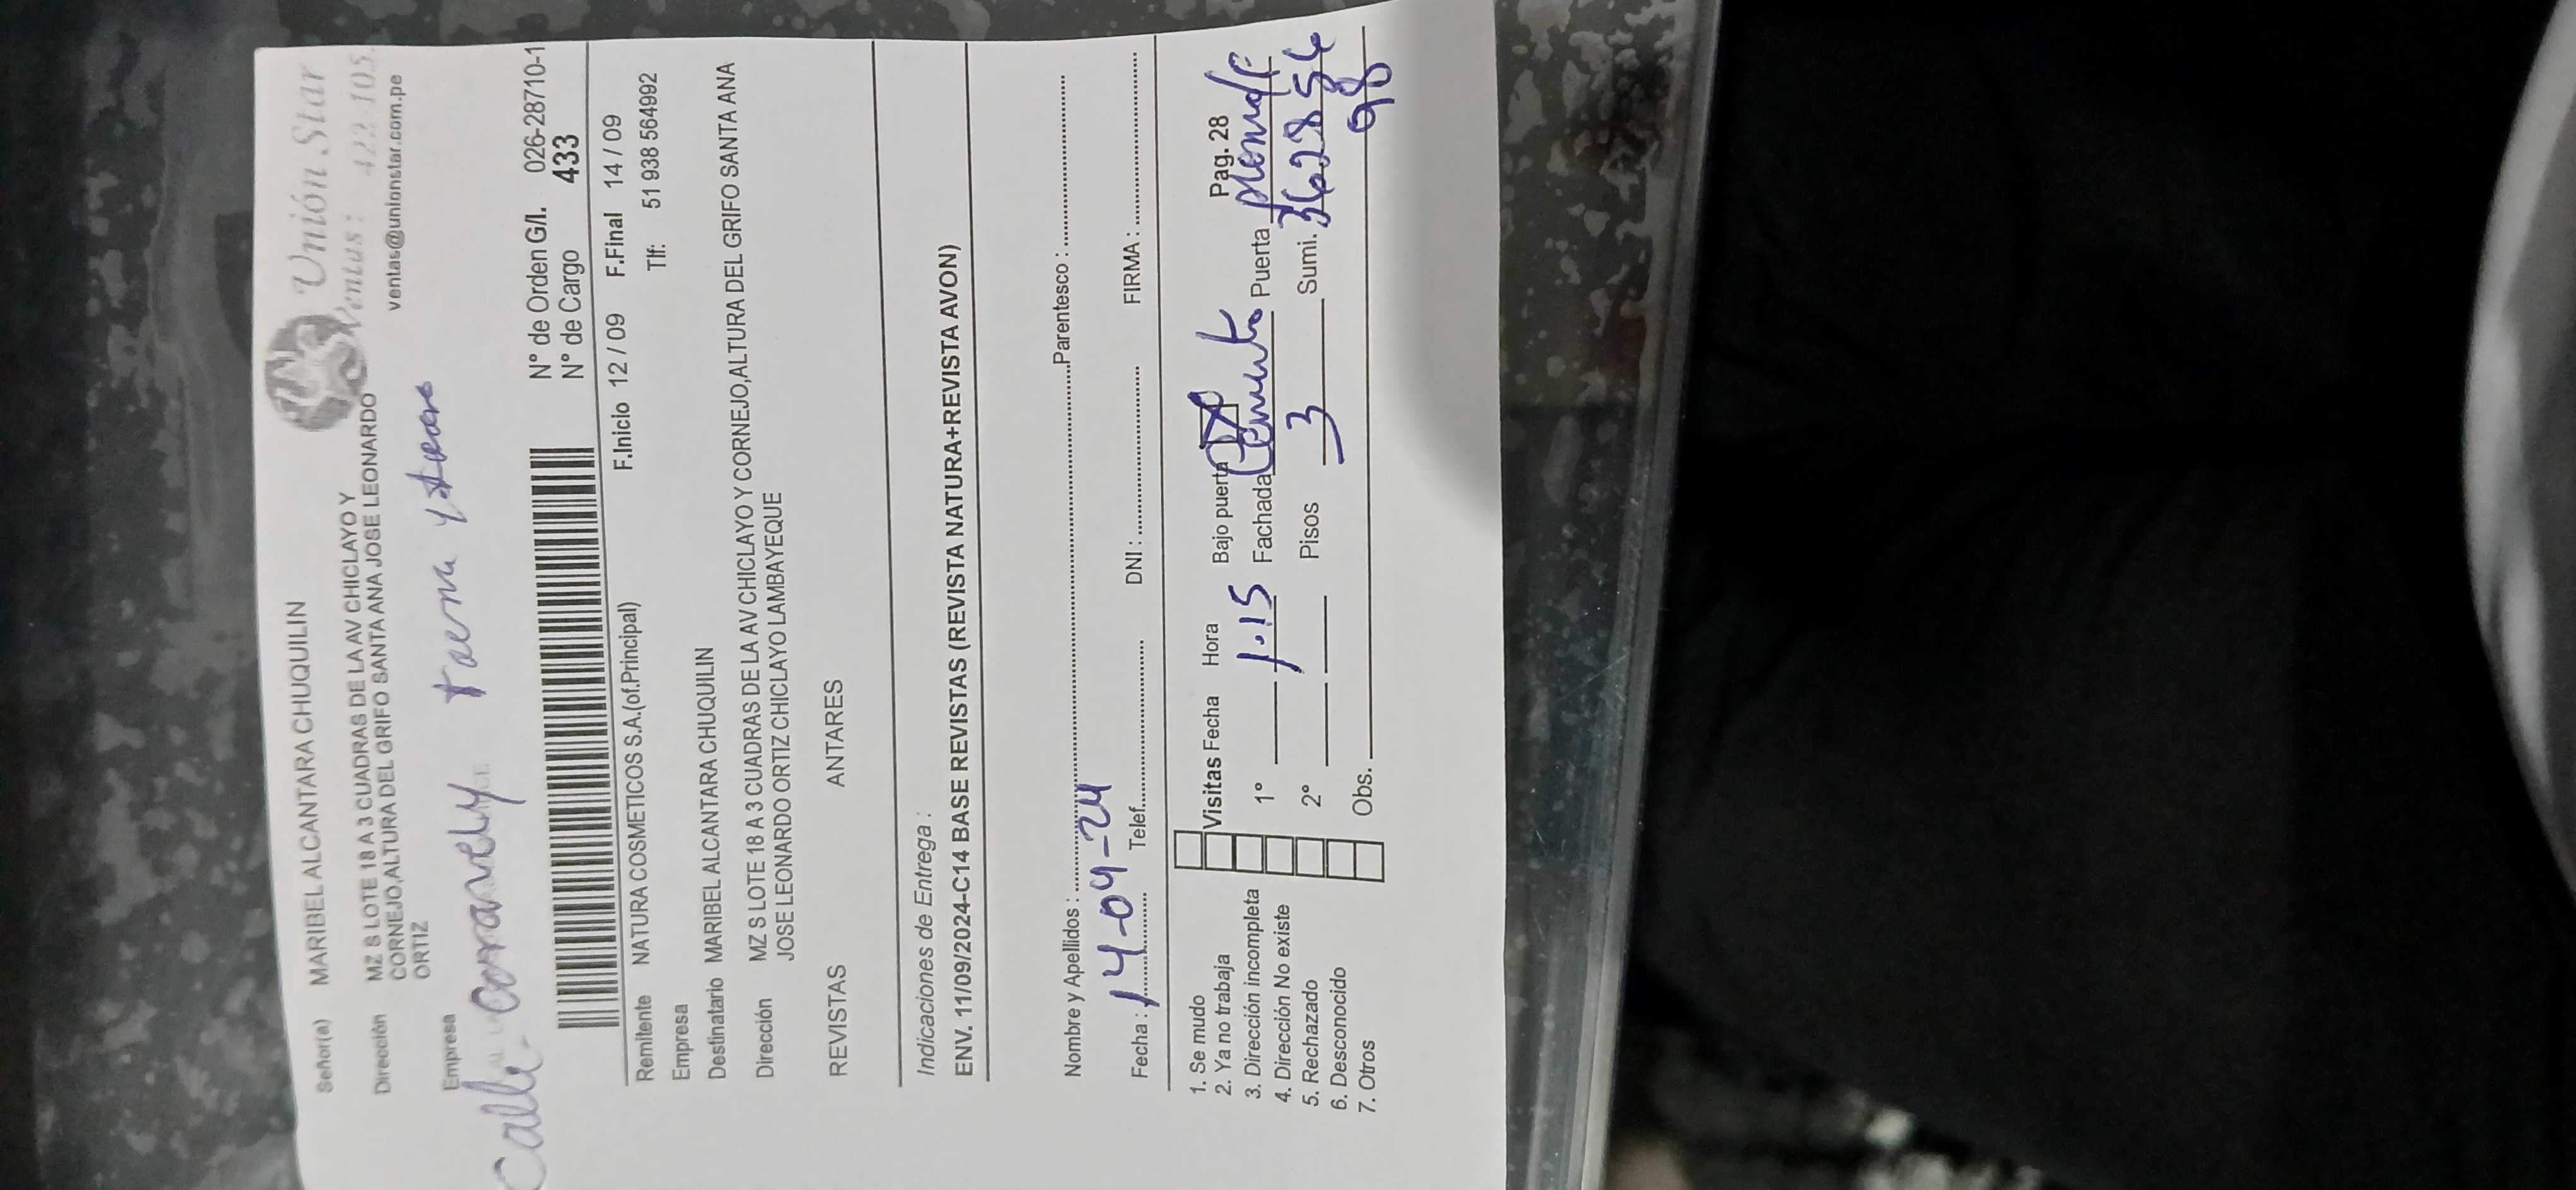 Unión Star
Ventas: 422 105
ventas@unionstar.com.pe
Señor(a) MARIBEL ALCANTARA CHUQUILIN
Dirección MZ S LOTE 18 A 3 CUADRAS DE LA AV CHICLAYO Y
CORNEJO,ALTURA DEL GRIFO SANTA ANA JOSE LEONARDO
ORTIZ
Empresa
Calle
N° de Orden G/I. 026-28710-1
N° de Cargo 433
F.Inicio 12 / 09 F.Final 14 / 09
Remitente NATURA COSMETICOS S.A.(of.Principal) Tlf: 51 938 564992
Empresa
Destinatario MARIBEL ALCANTARA CHUQUILIN
Dirección MZ S LOTE 18 A 3 CUADRAS DE LA AV CHICLAYO Y CORNEJO,ALTURA DEL GRIFO SANTA ANA
JOSE LEONARDO ORTIZ CHICLAYO LAMBAYEQUE
REVISTAS ANTARES
Indicaciones de Entrega :
ENV. 11/09/2024-C14 BASE REVISTAS (REVISTA NATURA+REVISTA AVON)
Nombre y Apellidos : Parentesco :
Fecha : 14-09-24 Telef. DNI : FIRMA :
1. Se mudo
2. Ya no trabaja
3. Dirección incompleta
4. Dirección No existe
5. Rechazado
6. Desconocido
7. Otros
Visitas Fecha Hora Bajo puerta Pag. 28
1° 1.15 Fachada Cemento Puerta
2° Pisos 3 Sumi.
98
Obs.